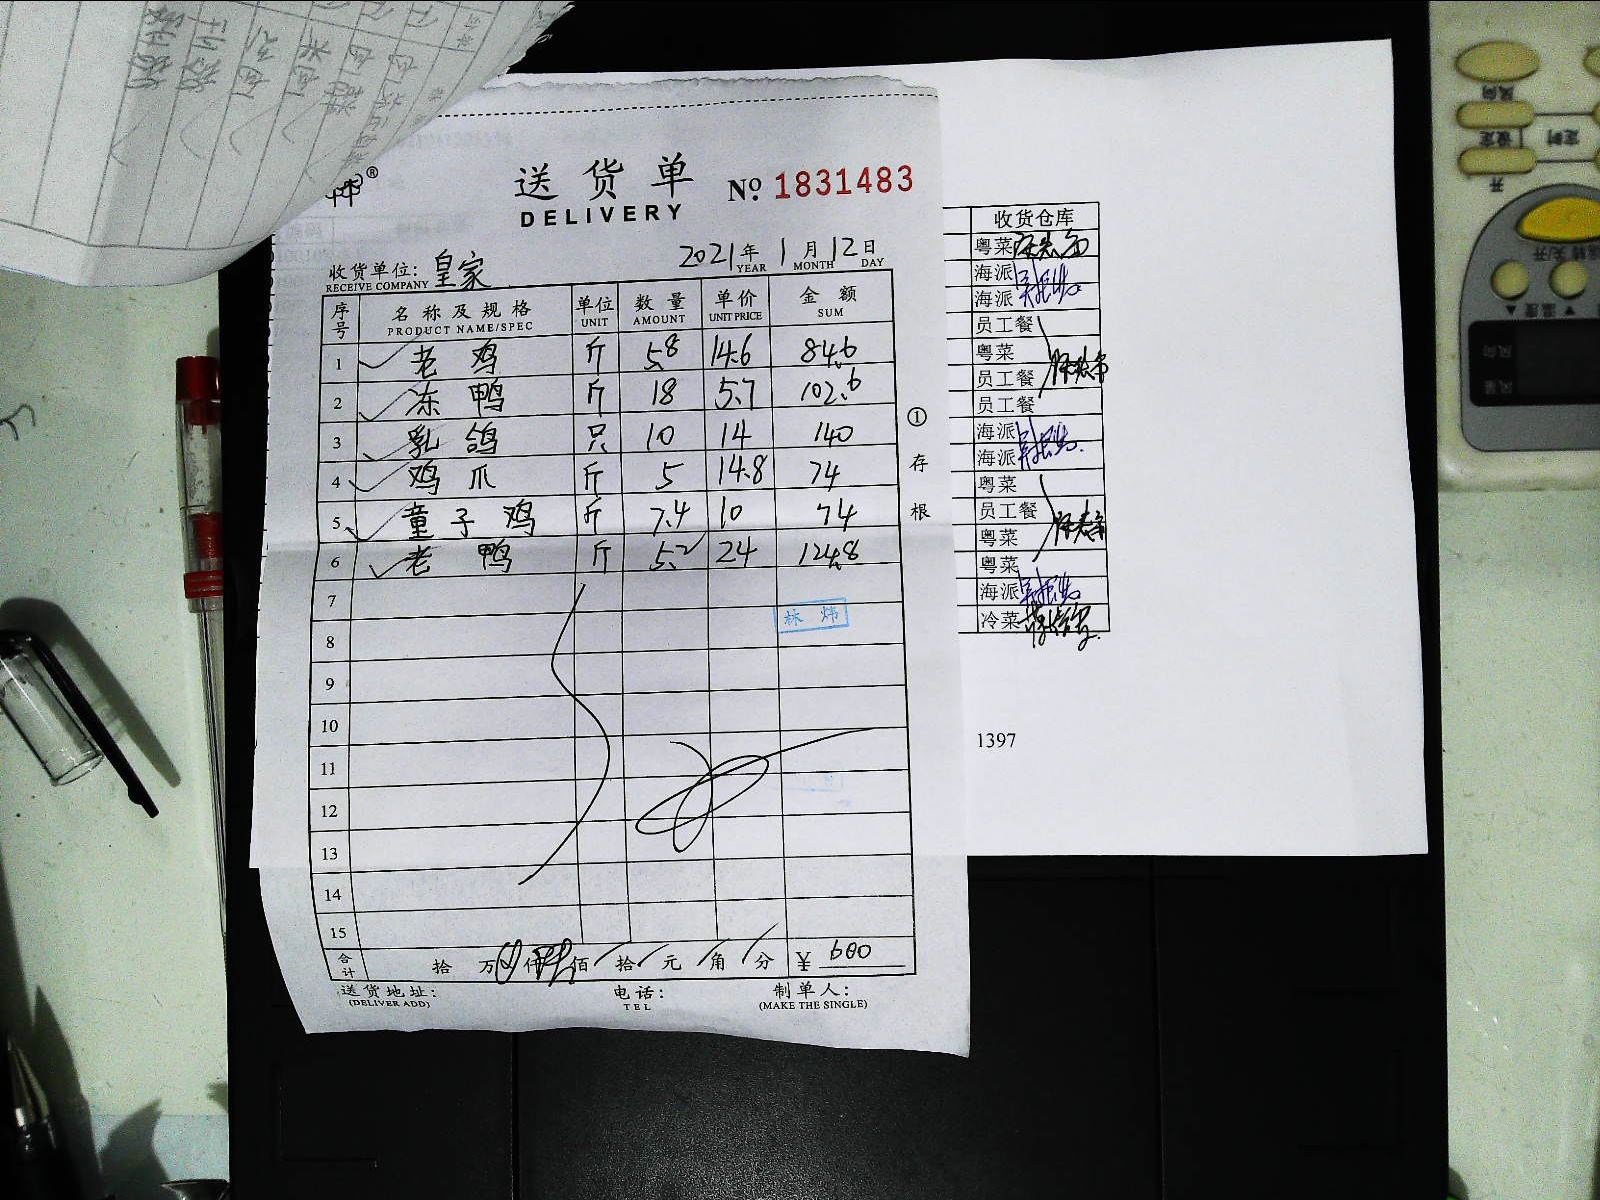 送货单 № 1831483
DELIVERY
2021年1月12日
YEAR MONTH DAY
收货单位: 皇家
RECEIVE COMPANY
序号 名称及规格 单位 数量 单价 金额
PRODUCT NAME/SPEC UNIT AMOUNT UNIT PRICE SUM
1 老鸡 斤 5.8 14.6 84.6
2 冻鸭 斤 18 5.7 102.6
3 乳鸽 只 10 14 140
4 鸡爪 斤 5 14.8 74
5 童子鸡 斤 7.4 10 74
6 老鸭 斤 5.2 24 124.8
7
林炜
8
9
10
11
12
13
14
15
合计 拾 万 仟 佰 拾 元 角 分 ¥ 600
送货地址: 电话: 制单人:
(DELIVER ADD) TEL (MAKE THE SINGLE)
①存根
收货仓库
粤菜
海派
海派
员工餐
粤菜
员工餐
员工餐
海派
海派
粤菜
员工餐
粤菜
粤菜
海派
冷菜
1397
风向
设定
定时
开
温度
风向
风量